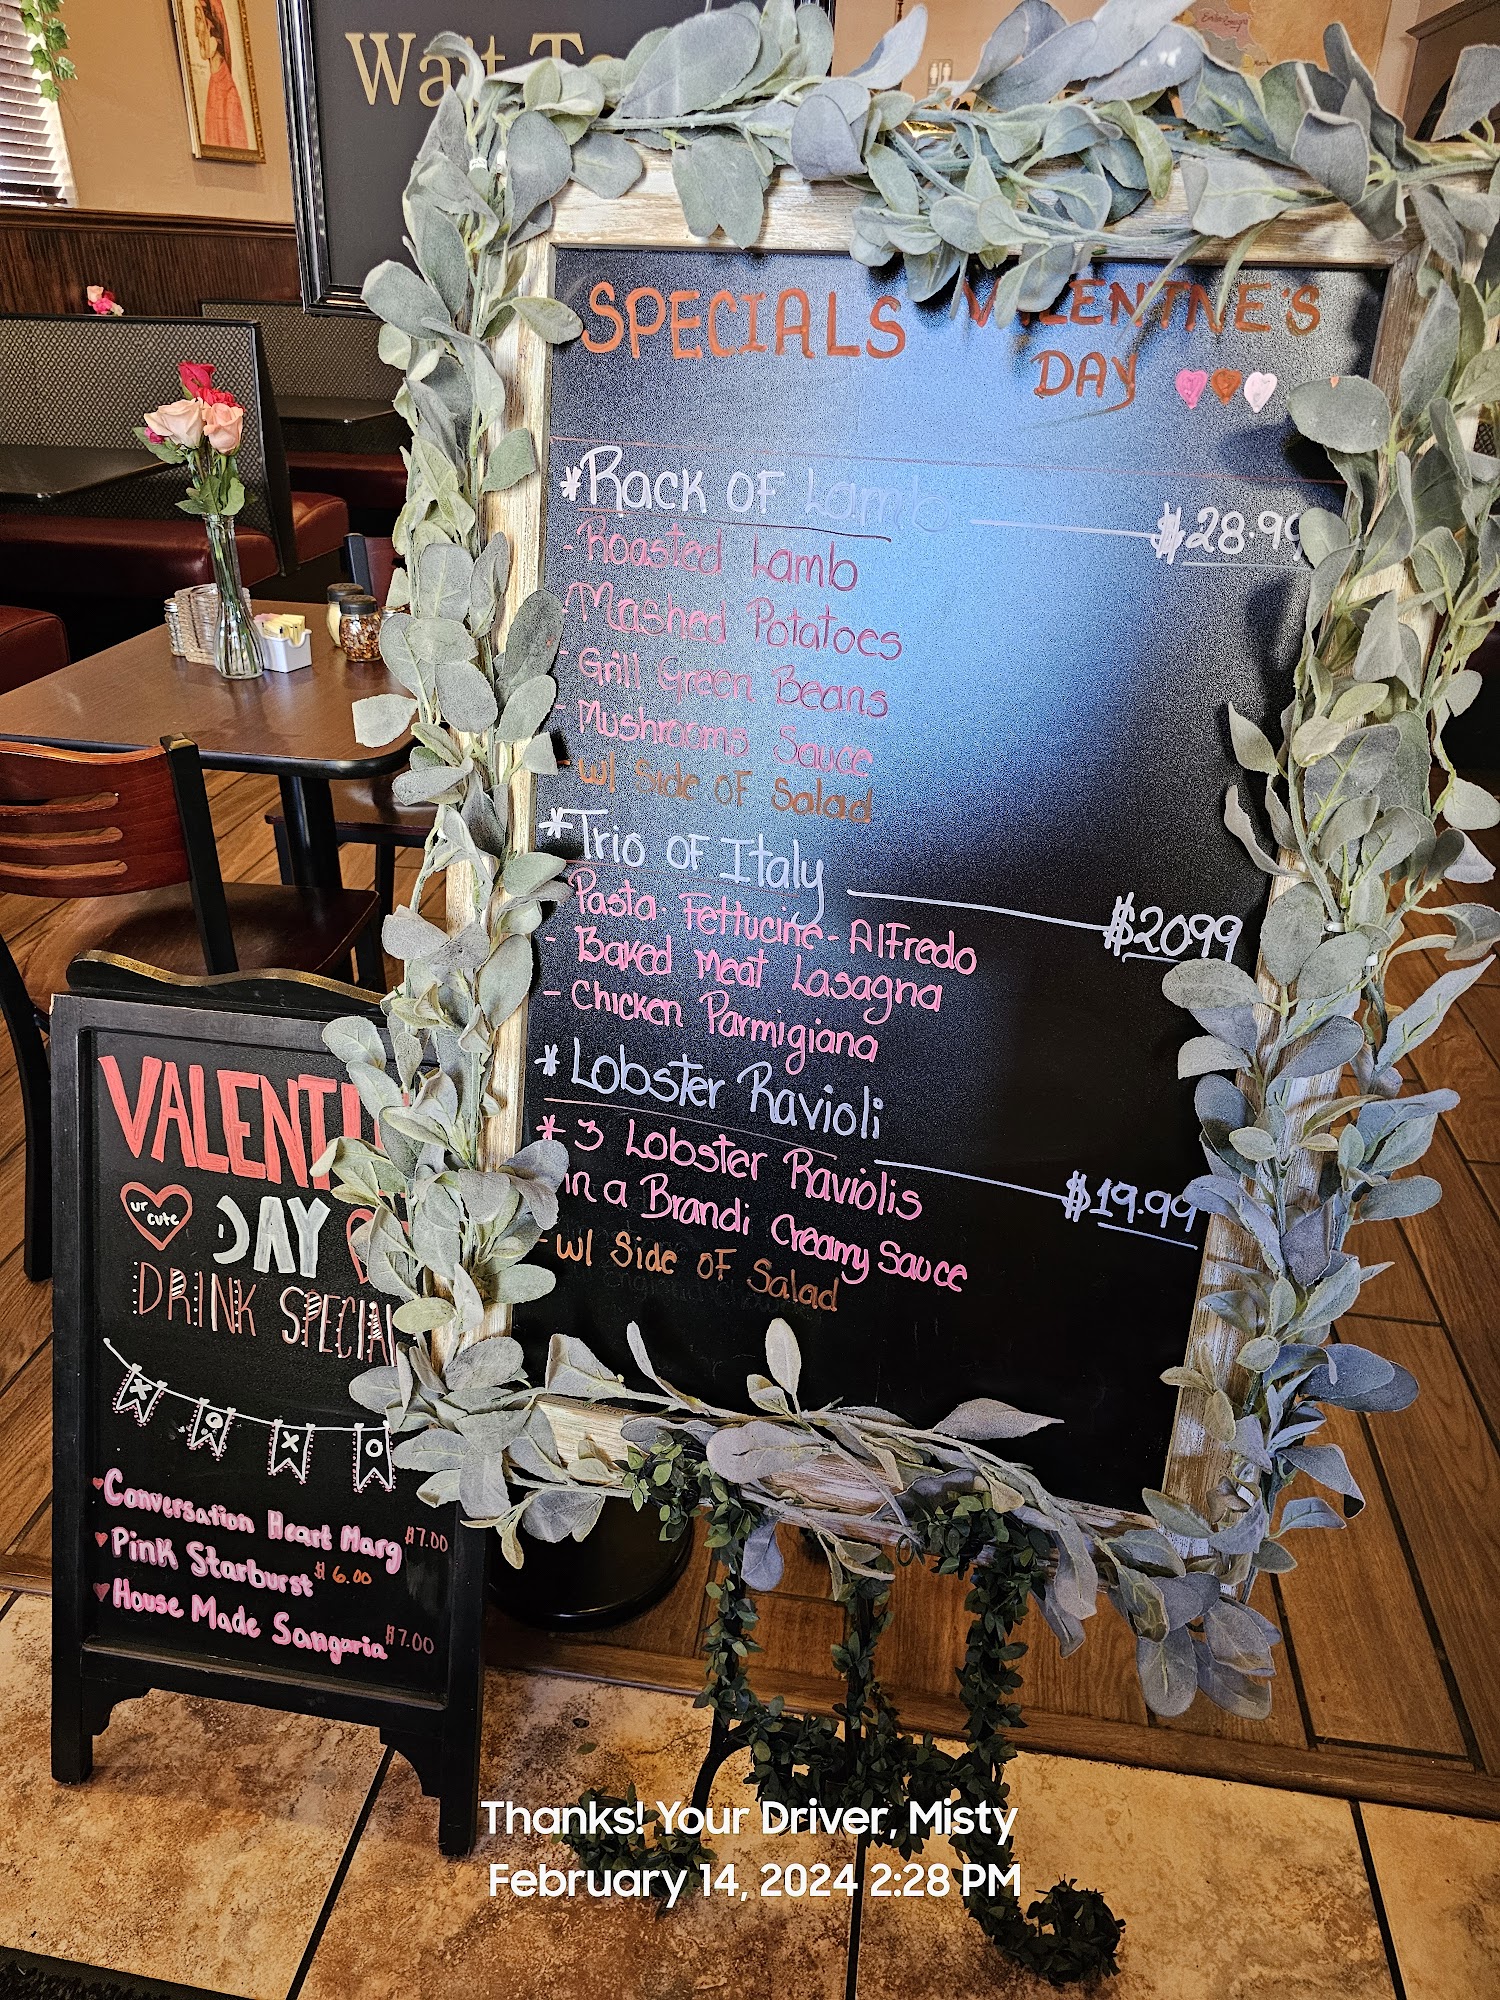 Wait To
SPECIALS VALENTNE'S
DAY
*Rack OF Lamb $28.99
- Roasted Lamb
- Mashed Potatoes
- Grill Green Beans
- Mushrooms Sauce
- w/ Side OF Salad
*Trio OF Italy $2099
Pasta. Fettucine- AlFredo
- Baked Meat Lasagna
- Chicken Parmigiana
* Lobster Ravioli
* 3 Lobster Raviolis $19.99
in a Brandi Creamy Sauce
- w/ Side OF Salad
VALENTI
ur cute
DAY
DRINK SPECIAL
X O X O
Conversation Heart Marg $7.00
Pink Starburst $6.00
House Made Sangaria $7.00
Thanks! Your Driver, Misty
February 14, 2024 2:28 PM